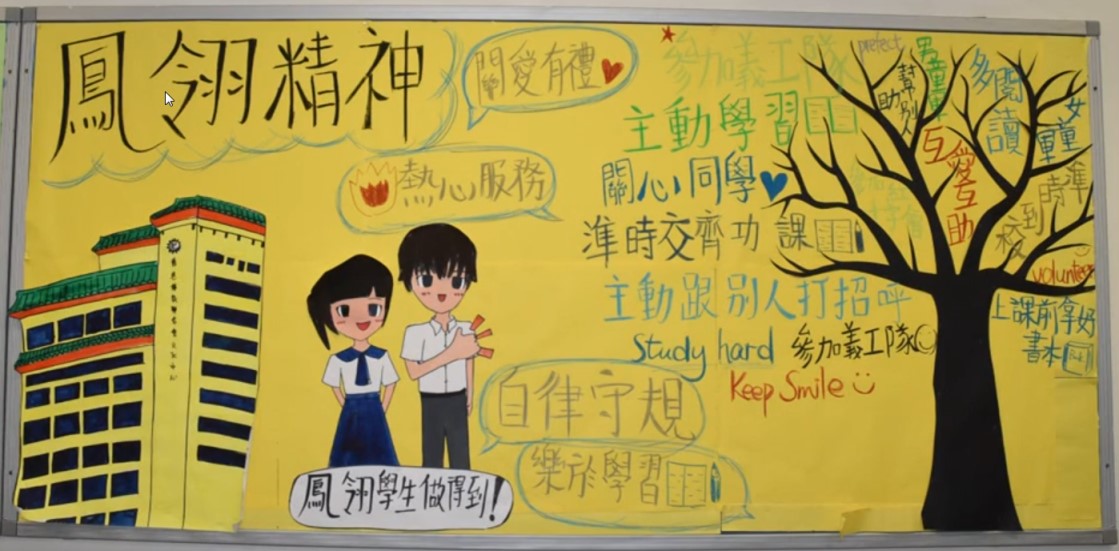 鳳翎精神
關愛有禮
熱心服務
參加義工隊
主動學習
關心同學
準時交齊功課
主動跟別人打招呼
Study hard
參加義工隊
Keep Smile
自律守規
樂於學習
鳳翎學生做得到!
prefect
幫助別人
男童軍
多閱讀
女童軍
互愛互助
準時到校
volunteer
上課前拿好
書本